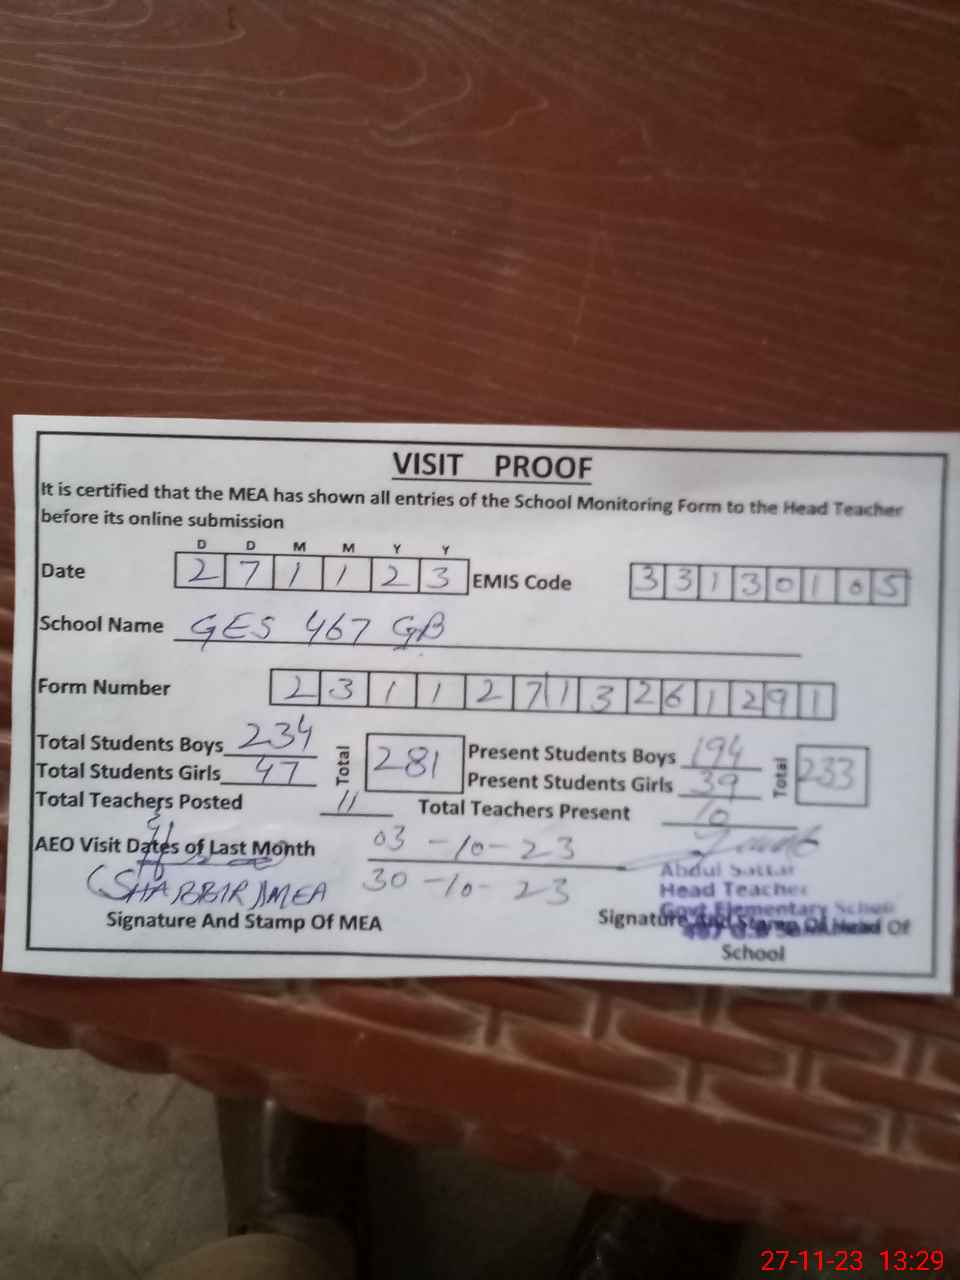 VISIT PROOF
It is certified that the MEA has shown all entries of the School Monitoring Form to the Head Teacher
before its online submission
D D M M Y Y
Date 2 7 1 1 2 3 EMIS Code 3 3 1 3 0 1 0 5
School Name GES 467 GB
Form Number 2 3 1 1 2 7 1 3 2 6 1 2 9 1
Total Students Boys 234 Total 281 Present Students Boys 194 Total 233
Total Students Girls 47 Present Students Girls 39
Total Teachers Posted 11 Total Teachers Present 10
AEO Visit Dates of Last Month 03-10-23
30-10-23
(SHABBIR) MEA
Abdul Sattar
Head Teacher
Govt Elementary School
Signature And Stamp Of MEA Signature And Stamp Of Head Of
School
27-11-23 13:29